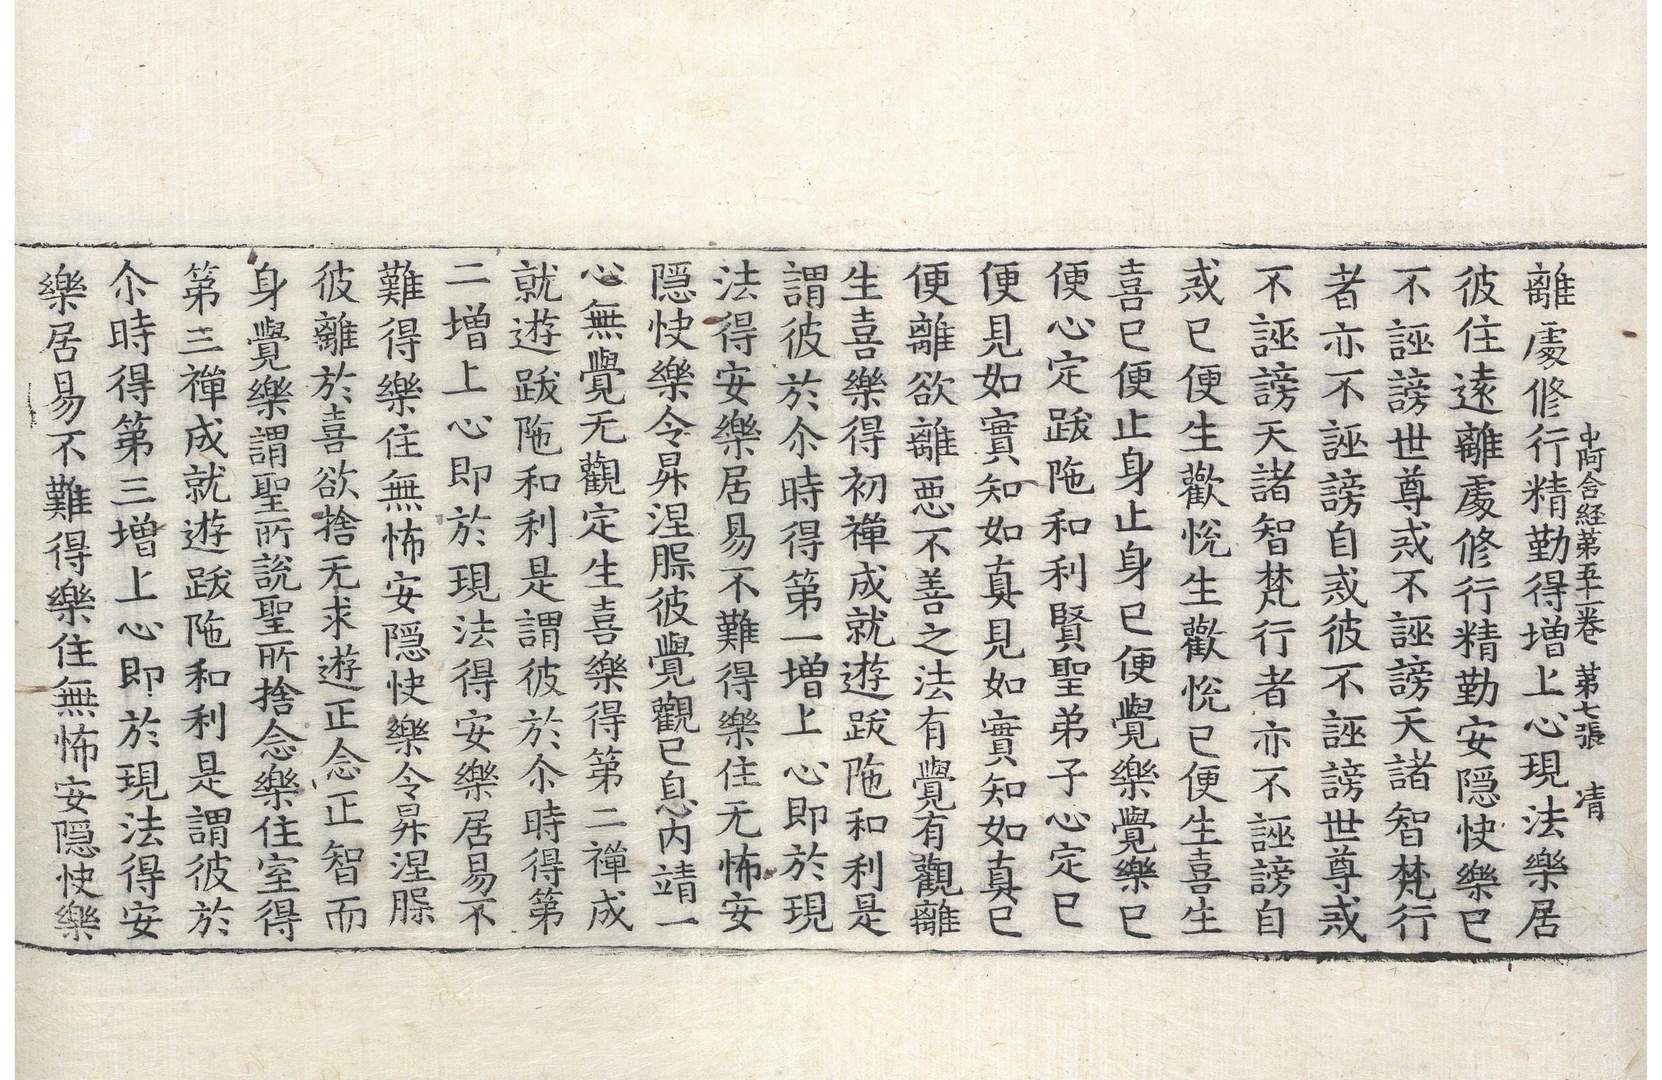 中阿含経第五十一卷 第七張 凊
離處修行精勤得增上心現法樂居
彼住遠離處修行精勤安隱快樂已
不誣謗世尊或不誣謗天諸智梵行
者亦不誣謗自或彼不誣謗世尊或
不誣謗天諸智梵行者亦不誣謗自
或已便生歡悅生歡悅已便生喜生
喜已便止身止身已便覺樂覺樂已
便心定跋陁和利賢聖弟子心定已
便見如實知如真見如實知如真已
便離欲離惡不善之法有覺有觀離
生喜樂得初禪成就遊跋陁和利是
謂彼於尒時得第一增上心即於現
法得安樂居易不難得樂住无怖安
隱快樂令昇涅槃彼覺觀已息內靖一
心無覺无觀定生喜樂得第二禪成
就遊跋陁和利是謂彼於尒時得第
二增上心即於現法得安樂居易不
難得樂住無怖安隱快樂令昇涅槃
彼離於喜欲捨无求遊正念正智而
身覺樂謂聖所說聖所捨念樂住室得
第三禪成就遊跋陁和利是謂彼於
尒時得第三增上心即於現法得安
樂居易不難得樂住無怖安隱快樂